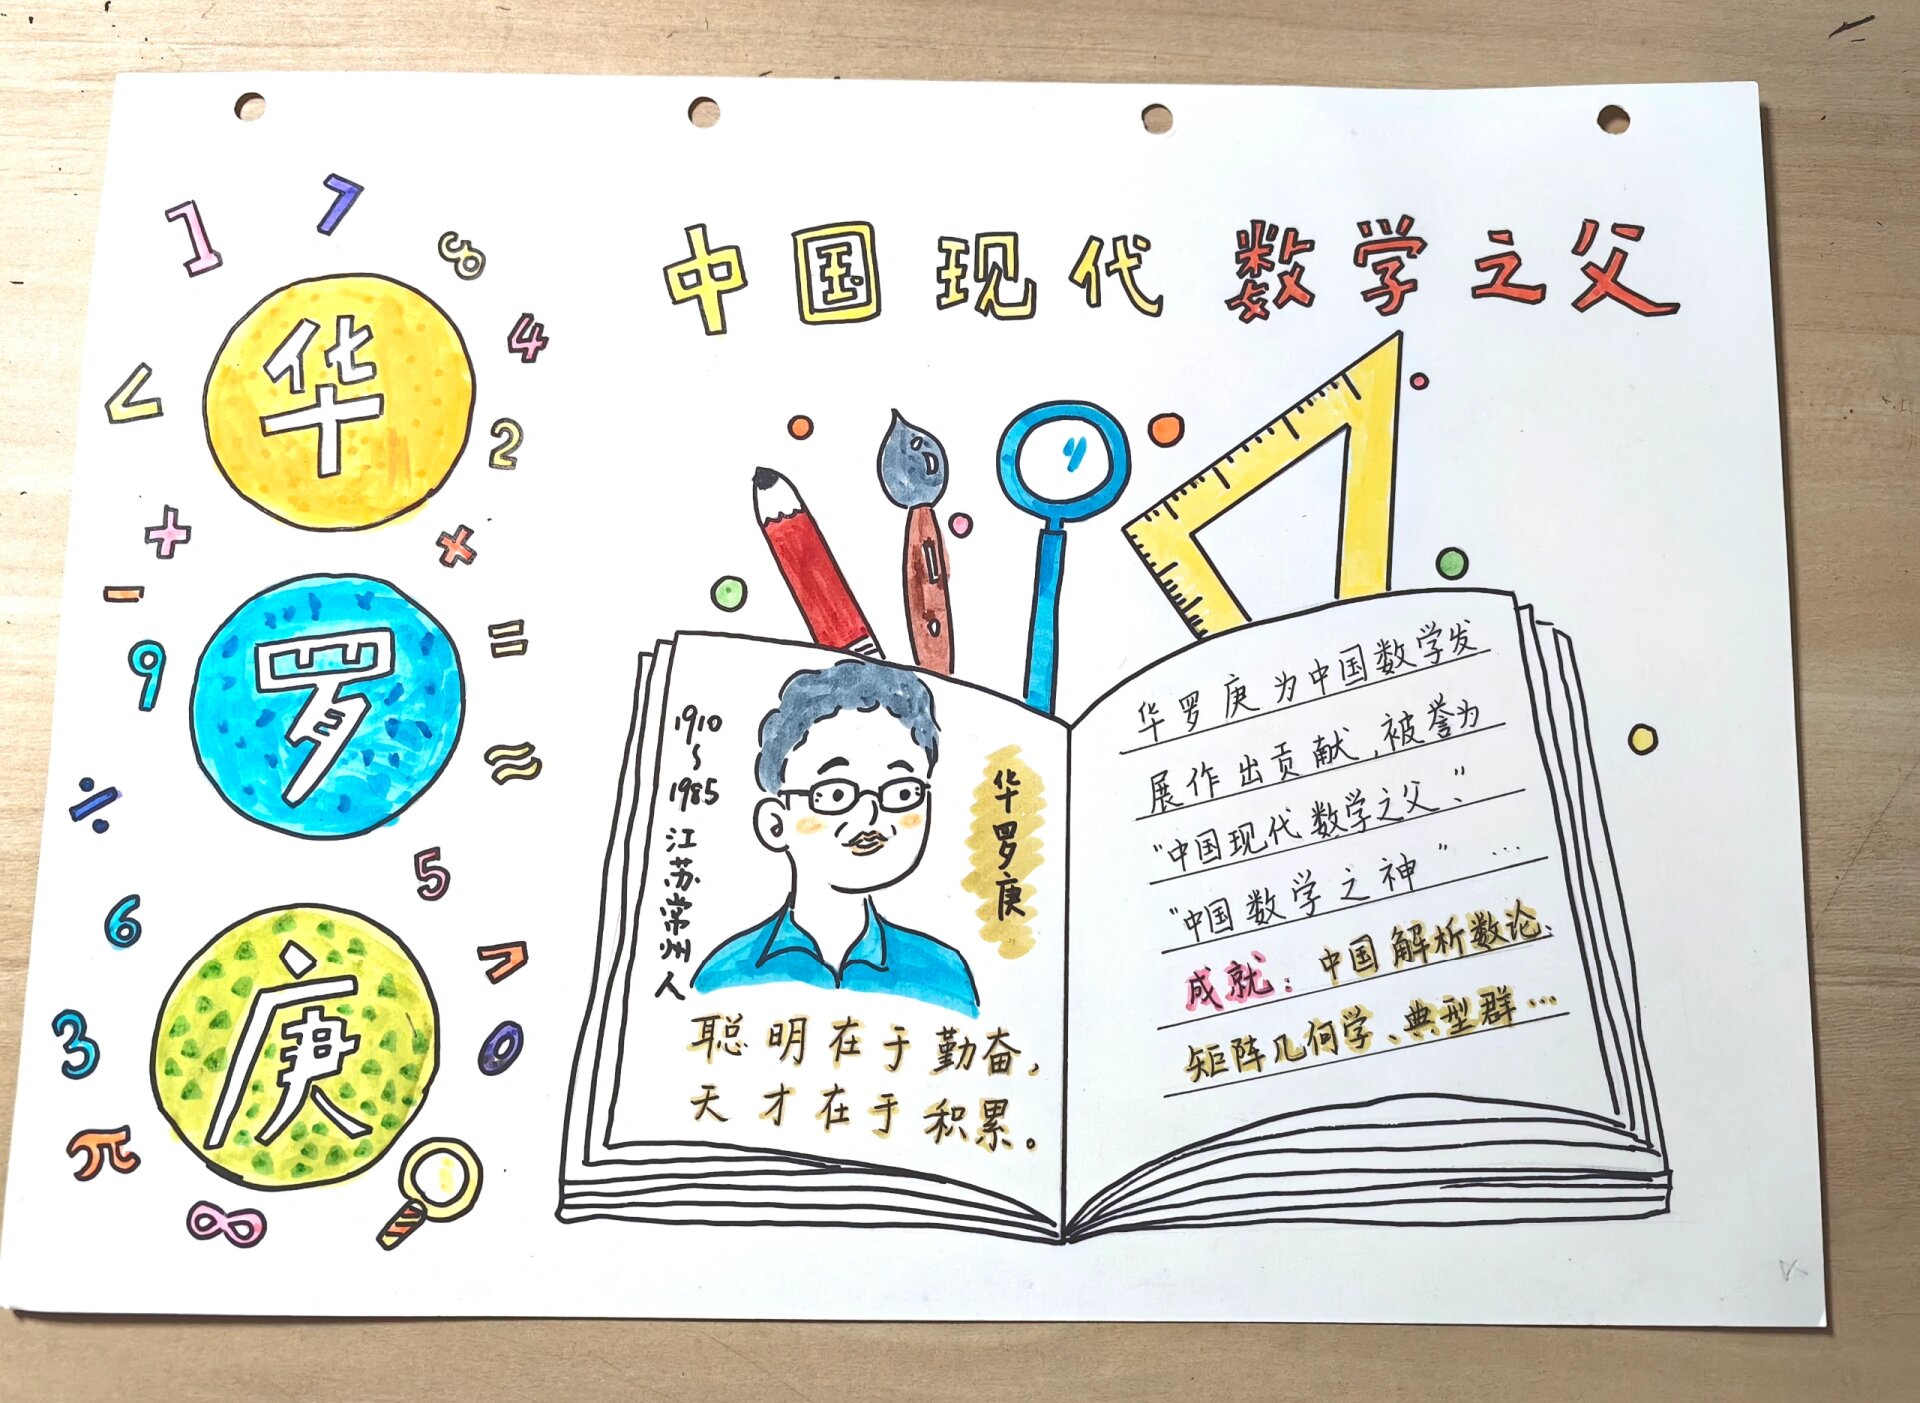 中国现代数学之父
1
7
8
4
<
华
2
+
×
-
9
罗
=
≈
÷
5
6
庚
>
3
0
π
∞
1910
~
1985
江苏常州人
华罗庚
聪明在于勤奋,
天才在于积累。
华罗庚为中国数学发
展作出贡献,被誉为
“中国现代数学之父”、
“中国数学之神”…
成就:中国解析数论、
矩阵几何学、典型群…